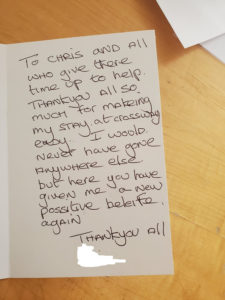 To CHRIS AND All
who give there
time up to help.
THANKyou All so
much for makeing
my stay at crossway
easy I would
Never have gone
Anywhere else
but here you have
given me a new
possitive beleife.
again
THANKyou All